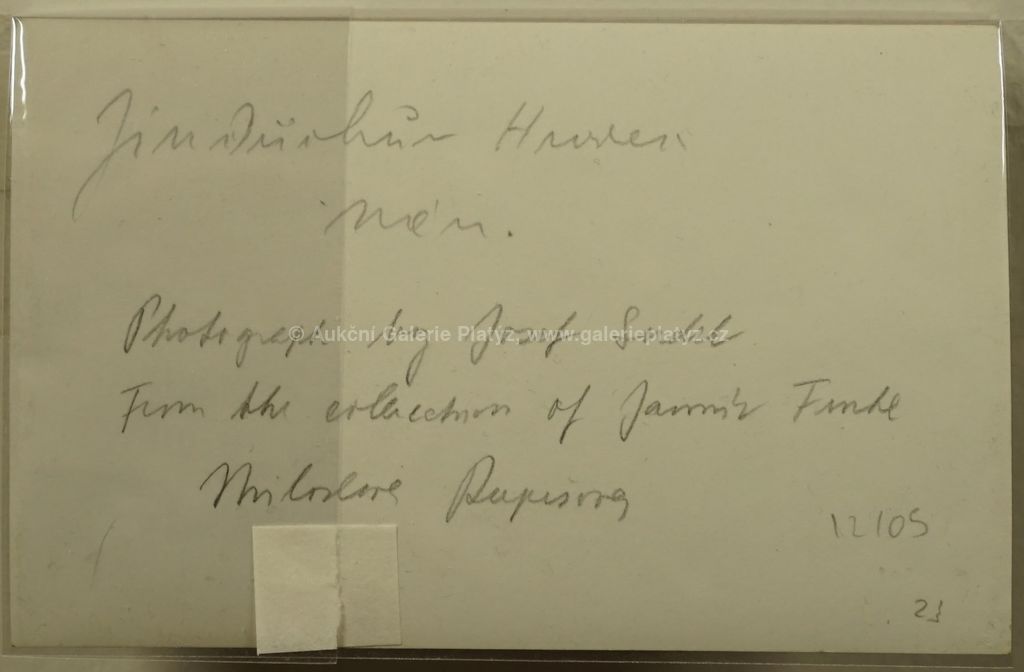 Jindřichův Hradec
Photograph by Josef Sudek
© Aukční Galerie Platýz, www.galerieplatyz.cz
From the collection of Jaromír Funke
Miloslava Rupešová
12/05
23